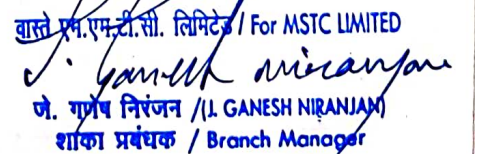 वास्ते एम.एम.टी.सी. लिमिटेड / For MSTC LIMITED
J. Ganesh Niranjan
जे. गणेष निरंजन /(J. GANESH NIRANJAN)
शाका प्रबंधक / Branch Manager